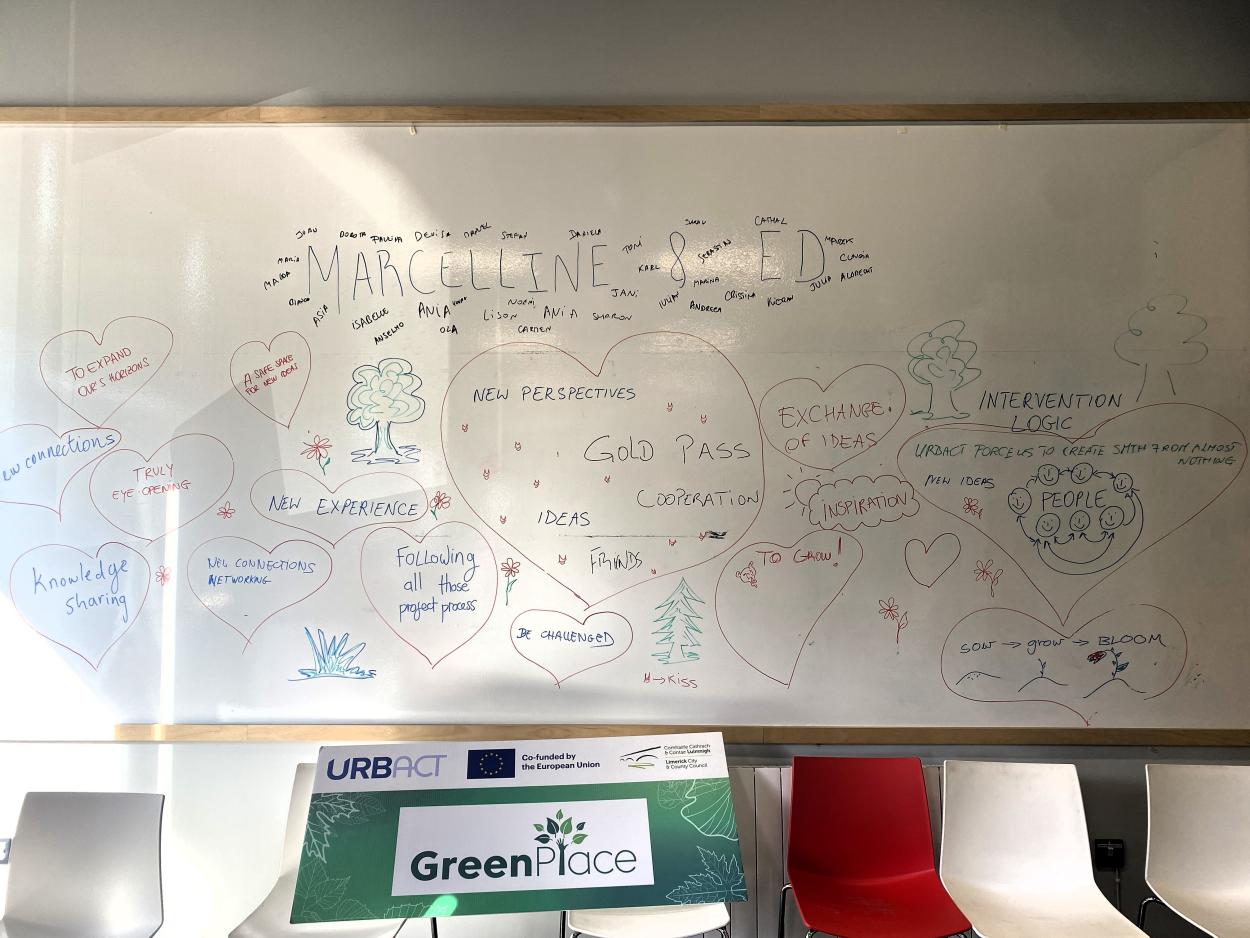 DOROTA
PAULINA
DENISA
STEFAN
DANIELA
TONI
CATHAL
SEBASTIAN
MAREK
CLAUDIA
MARIA
MAGDA
MARCELLINE & ED
KARL
MARINA
JULIA ALBRECHT
BIANCA
ASIA
ISABELLE
ANSELMO
ANIA
OLA
LISON
NOEMI
ANIA
CARMEN
SHARON
JANI
JULIAN
ANDREEA
CRISTINA
TO EXPAND
OUR'S HORIZONS
A SAFE SPACE
FOR NEW IDEAS
NEW PERSPECTIVES
GOLD PASS
COOPERATION
IDEAS
FRIENDS
EXCHANGE
OF IDEAS
INTERVENTION
LOGIC
URBACT FORCE US TO CREATE SMTH FROM ALMOST
NOTHING
NEW IDEAS
PEOPLE
ew connections
TRULY
EYE OPENING
NEW EXPERIENCE
INSPIRATION
Knowledge
sharing
NEW CONNECTIONS
NETWORKING
Following
all those
project process
BE CHALLENGED
TO GROW!
→ KISS
sow → grow → BLOOM
URBACT
Co-funded by
the European Union
Comhairle Cathrach
& Contae Luimnigh
Limerick City
& County Council
GreenPlace